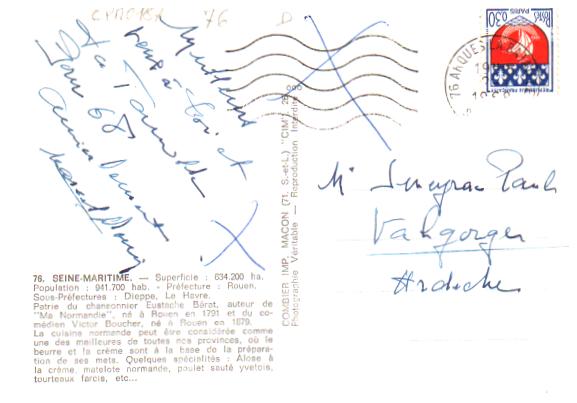 76 D
Meilleurs
vœux à toi et
ta famille
pour 68
76 ARQUES LA
PARIS
0,30
REPUBLIQUE FRANÇAISE
COMBIER IMP. MACON (71. S.-et-L.) "CIM"
Photographie Véritable — Reproduction Interdite
Mr Paul
Ardèche
76. SEINE-MARITIME. — Superficie : 634.200 ha.
Population : 941.700 hab. - Préfecture : Rouen.
Sous-Préfectures : Dieppe, Le Havre.
Patrie du chansonnier Eustache Bérat, auteur de
"Ma Normandie", né à Rouen en 1791 et du co-
médien Victor Boucher, né à Rouen en 1879.
La cuisine normande peut être considérée comme
une des meilleures de toutes nos provinces, où le
beurre et la crème sont à la base de la prépara-
tion de ses mets. Quelques spécialités : Alose à
la crème, matelote normande, poulet sauté yvetois,
tourteaux farcis, etc...